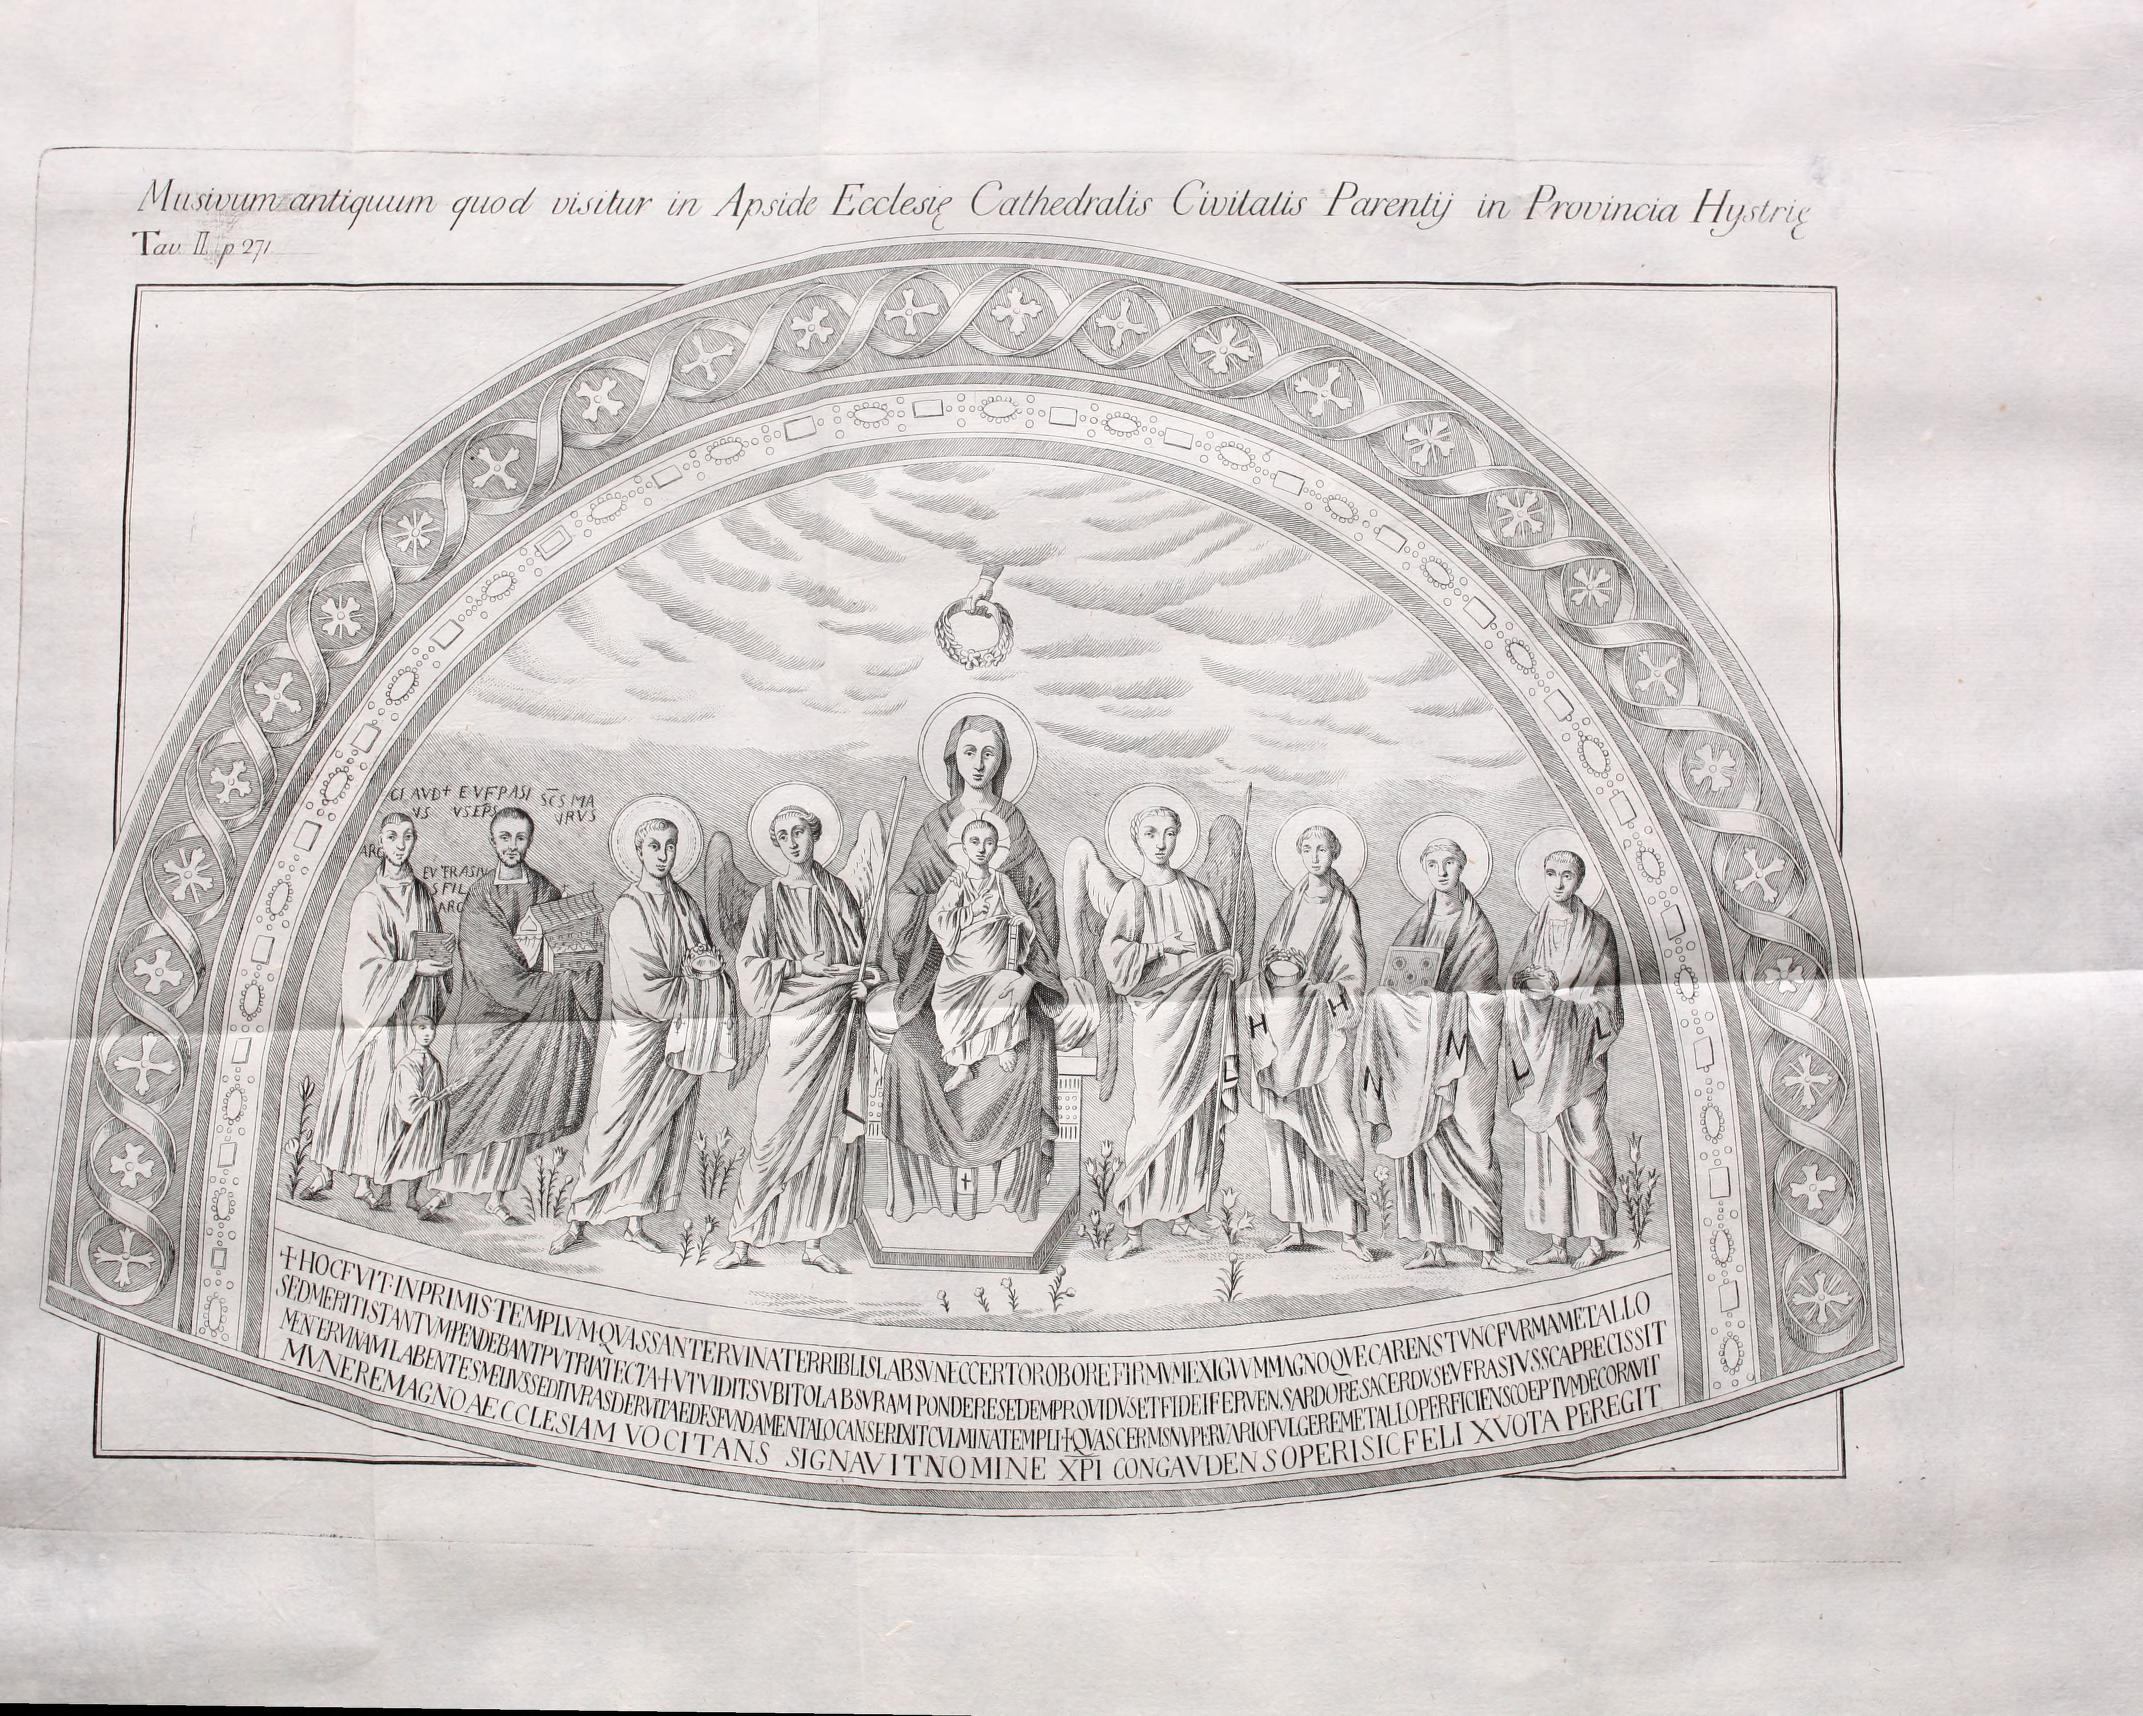 Musivum antiquum quod visitur in Apside Ecclesię Cathedralis Civitatis Parentij in Provincia Hystrię
Tav. II. p 271
CLAVD
VS
ARC
+ EVFPASI
VSEPS
SCS MA
VRVS
EV FRASIV
S FIL
ARC
L
L
H
H
N
N
L
L
+HOCFVIT·INPRIMIS·TEMPLVM·QVASSANTERVINATERRIBLISLABSVNECCERTOROBOREFIRMVMEXIGVVMMAGNOQVECARENSTVNCFVRMAMETALLO
SEDMERITISTANTVMPENDEBANTPVTRIATECTA+VTVIDITSVBITOLABSVRAM PONDERESEDEMPROVIDVSETFIDEIFERVENSARDORESACERDVSEVFRASIVSSCAPRECISSIT
MENERVINAMLABENTESMELIVSSEDITVRASDERVITAEDESFVNDAMENTALOCANSERIXITCVLMINATEMPLI+QVASCERMSNVPERVARIOFVLGEREMETALLOPERFICIENSCOEPTVMDECORAVIT
MVNEREMAGNOAECCLESIAM VOCITANS SIGNAVITNOMINE XPI CONGAVDENSOPERISICFELI XVOTA PEREGIT